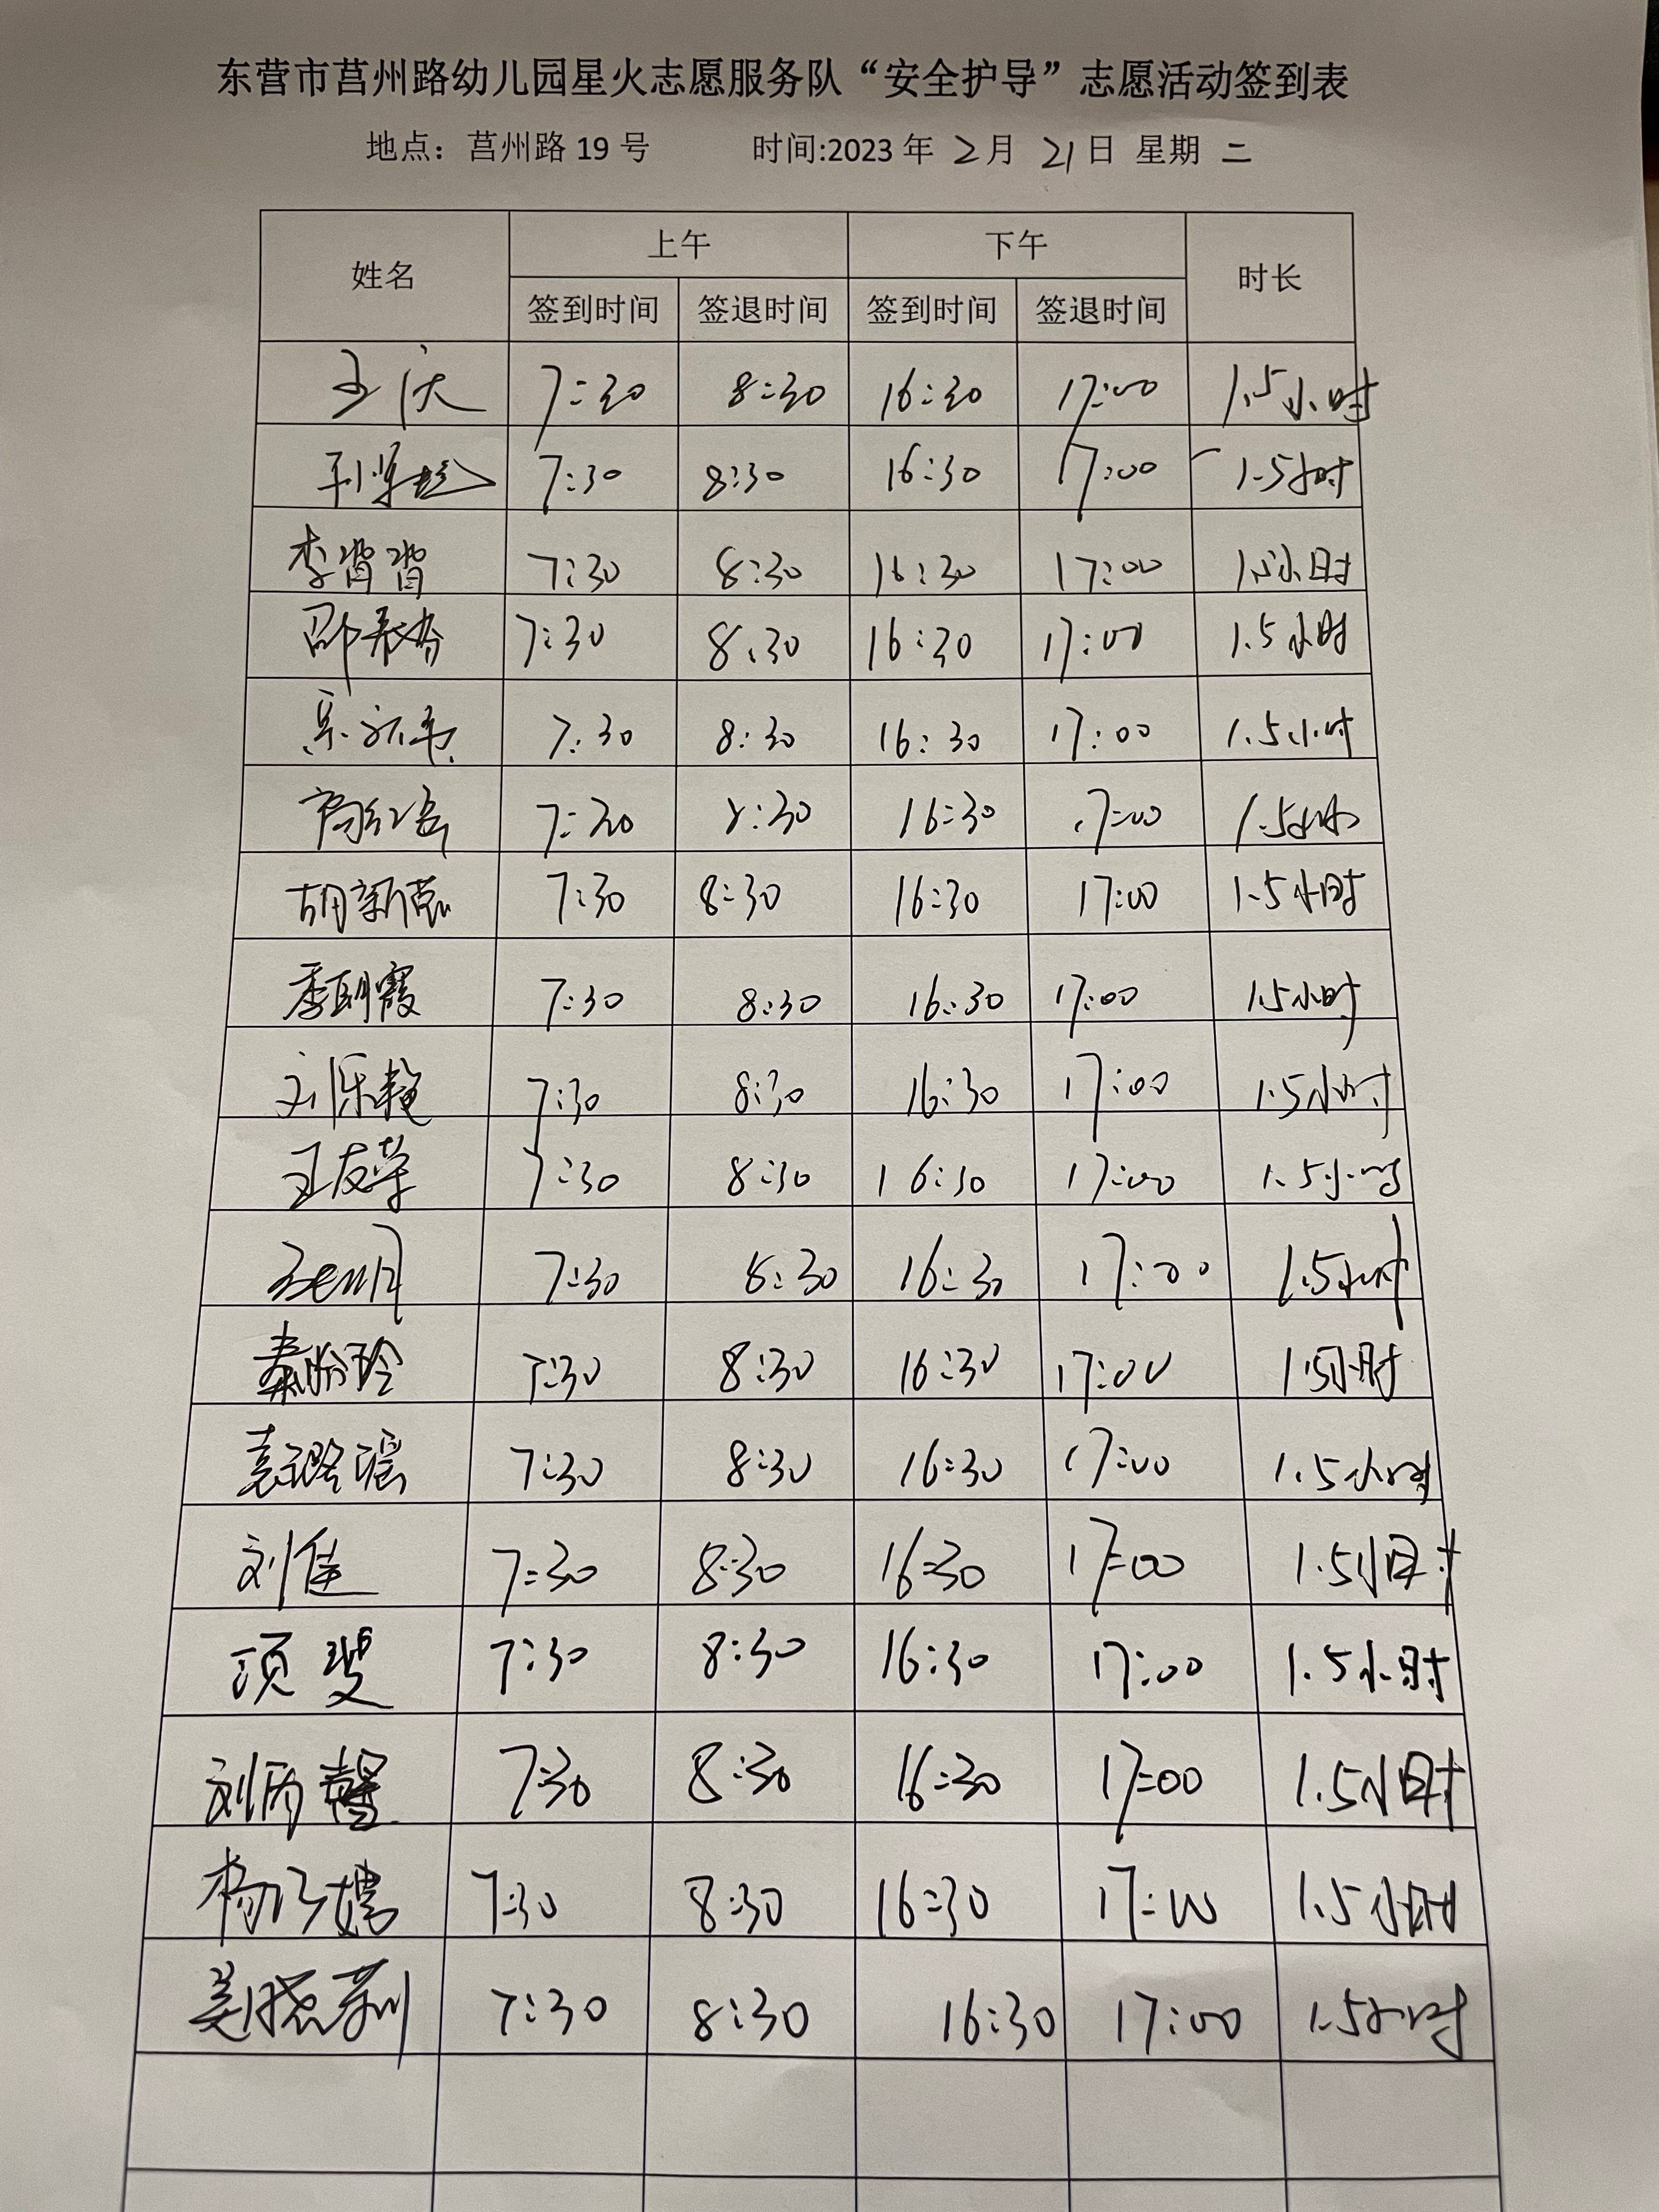 东营市莒州路幼儿园星火志愿服务队“安全护导”志愿活动签到表
地点：莒州路 19 号 时间:2023 年 2 月 21 日 星期 二
姓名 上午 下午 时长
签到时间 签退时间 签到时间 签退时间
7:30 8:30 16:30 17:00 1.5小时
7:30 8:30 16:30 17:00 1.5小时
李肖肖 7:30 8:30 16:30 17:00 1.5小时
7:30 8:30 16:30 17:00 1.5小时
7:30 8:30 16:30 17:00 1.5小时
7:30 8:30 16:30 17:00 1.5小时
胡新 7:30 8:30 16:30 17:00 1.5小时
季明霞 7:30 8:30 16:30 17:00 1.5小时
刘乐艳 7:30 8:30 16:30 17:00 1.5小时
王友荣 7:30 8:30 16:30 17:00 1.5小时
7:30 8:30 16:30 17:00 1.5小时
秦盼玲 7:30 8:30 16:30 17:00 1.5小时
袁璐瑶 7:30 8:30 16:30 17:00 1.5小时
刘佳 7:30 8:30 16:30 17:00 1.5小时
项斐 7:30 8:30 16:30 17:00 1.5小时
刘雨馨 7:30 8:30 16:30 17:00 1.5小时
杨 7:30 8:30 16:30 17:00 1.5小时
姜晓莉 7:30 8:30 16:30 17:00 1.5小时